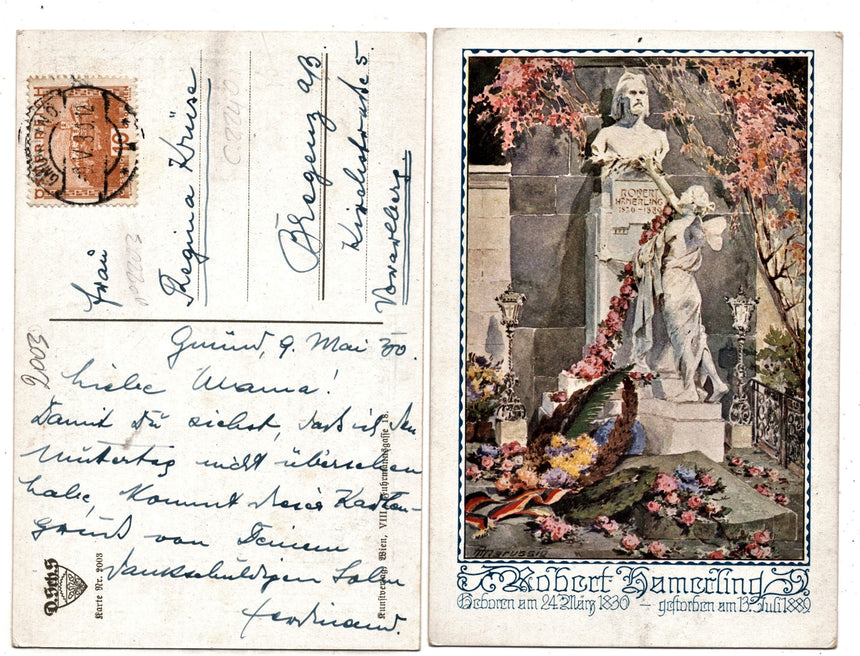 Frau
Regina Krüse
Bregenz a/B.
Kirchstraße 5.
Vorarlberg.
2003
Gmünd, 9. Mai 30.
Liebe Mama!
Damit Du siehst, dass ich den
Muttertag nicht übersehen
habe, kommt dieser Karten-
gruß von Deinem
dankschuldigen Sohn
Ferdinand.
D.Sch.S
Karte Nr. 2003
Kunstverlag Wien, VIII. Fuhrmannsgasse 18.
ROBERT
HAMERLING
1830-1889
Robert Hamerling
Geboren am 24. März 1830 — gestorben am 13. Juli 1889